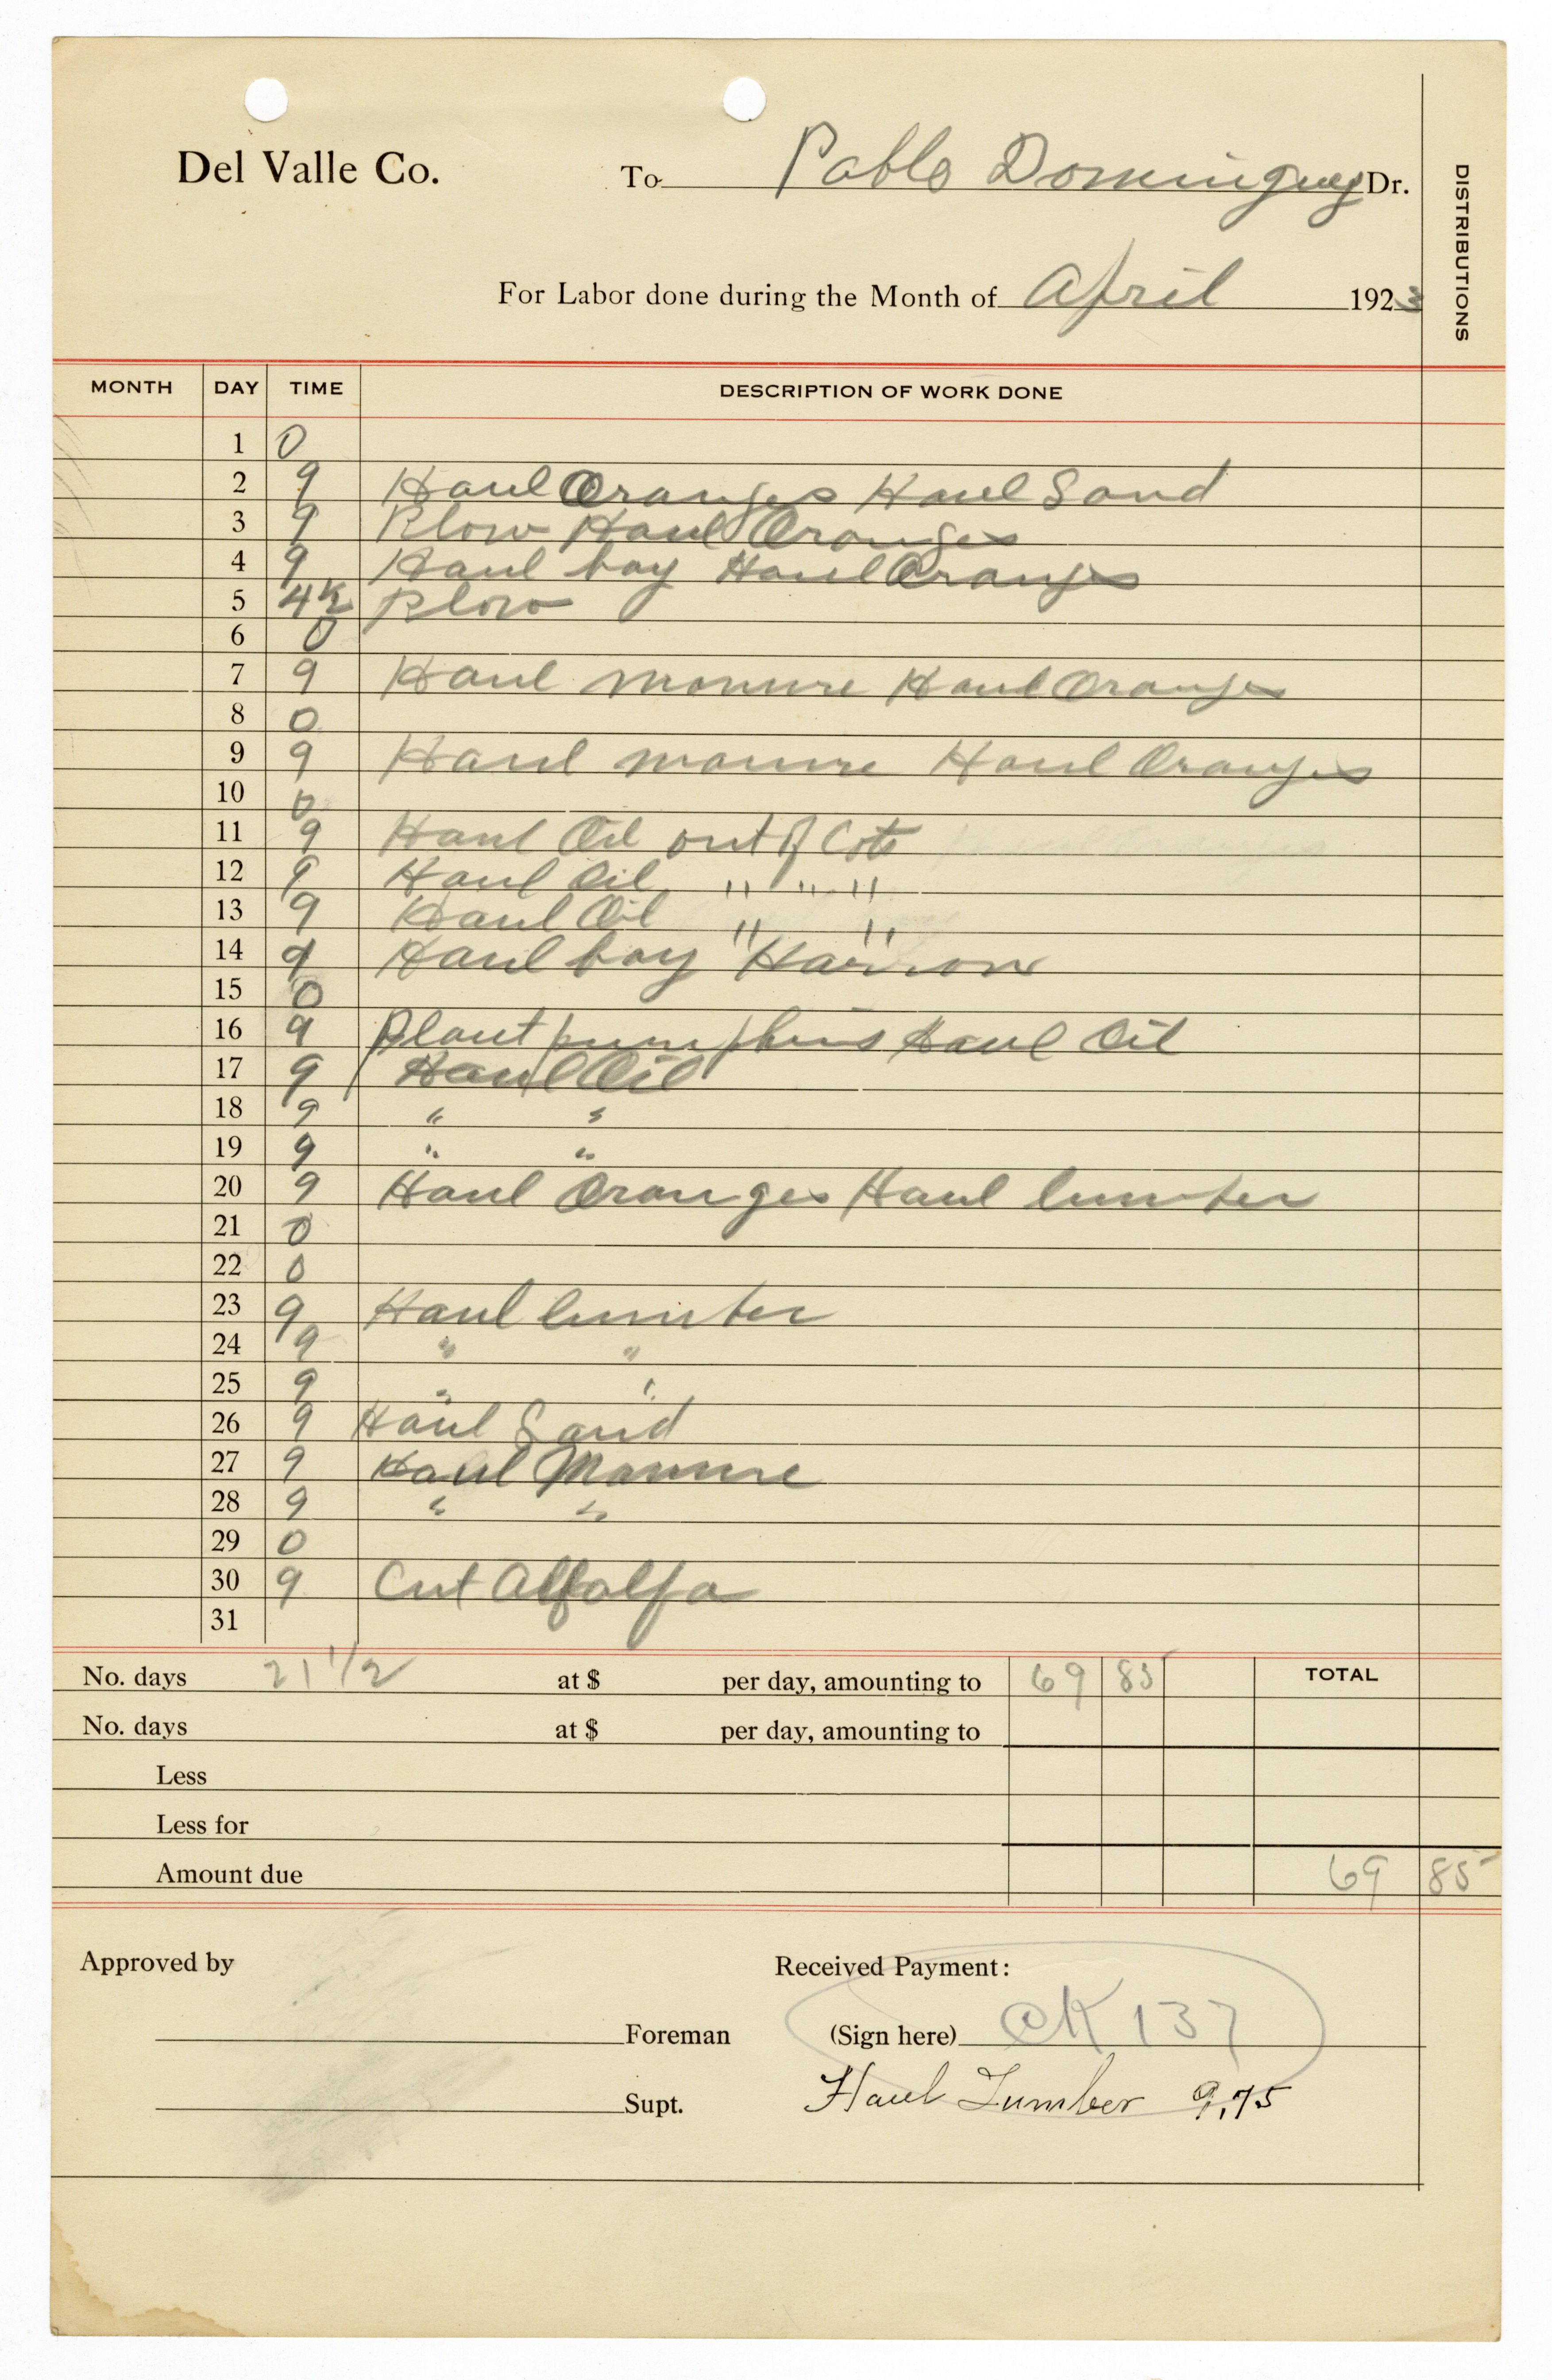 Del Valle Co. To Pablo Dominguez Dr.
DISTRIBUTIONS
For Labor done during the Month of April 1923
MONTH DAY TIME DESCRIPTION OF WORK DONE
1 0
2 9 Haul Oranges Haul Sand
3 9 Plow Haul Oranges
4 9 Haul hay Haul Oranges
5 4½ Plow
6 0
7 9 Haul manure Haul Oranges
8 0
9 9 Haul manure Haul Oranges
10 0
11 9 Haul Oil out of Cots
12 9 Haul Oil " " "
13 9 Haul Oil " "
14 9 Haul hay Harrow
15 0
16 9 Plant pumpkins Haul Oil
17 9 Haul Oil
18 9 " "
19 9 " "
20 9 Haul Oranges Haul lumber
21 0
22 0
23 9 Haul lumber
24 9 " "
25 9 " "
26 9 Haul Sand
27 9 Haul Manure
28 9 " "
29 0
30 9 Cut Alfalfa
31
No. days 21 1/2 at $ per day, amounting to 69 85 TOTAL
No. days at $ per day, amounting to
Less
Less for
Amount due 69 85
Approved by Received Payment:
Foreman (Sign here) CK 137
Supt. Haul Lumber 9.75